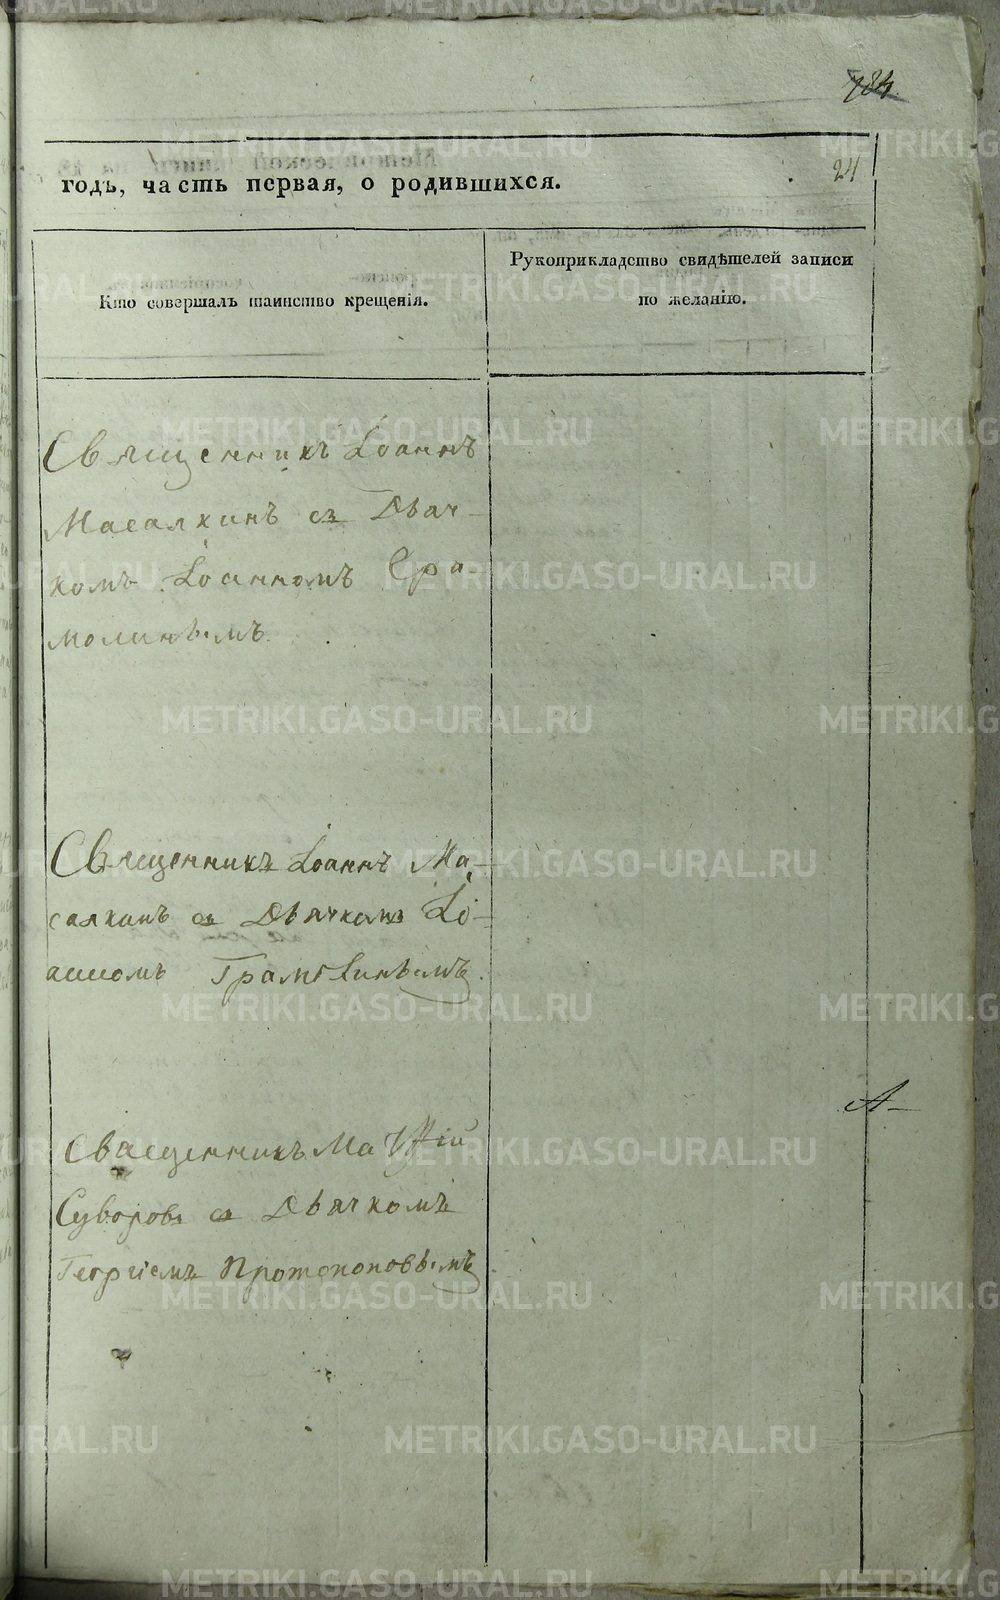 184.
24
годъ, часть первая, о родившихся.
Кто совершалъ таинство крещенія.
Рукоприкладство свидѣтелей записи
по желанію.
Священникъ Іоаннъ
Масалкинъ съ Дьяч-
комъ Іоанномъ
Священникъ Іоаннъ Ма-
салкинъ съ Дьячкомъ Іо-
анномъ
Священникъ
Суворовъ съ Дьячкомъ
Протопоповымъ
METRIKI.GASO-URAL.RU